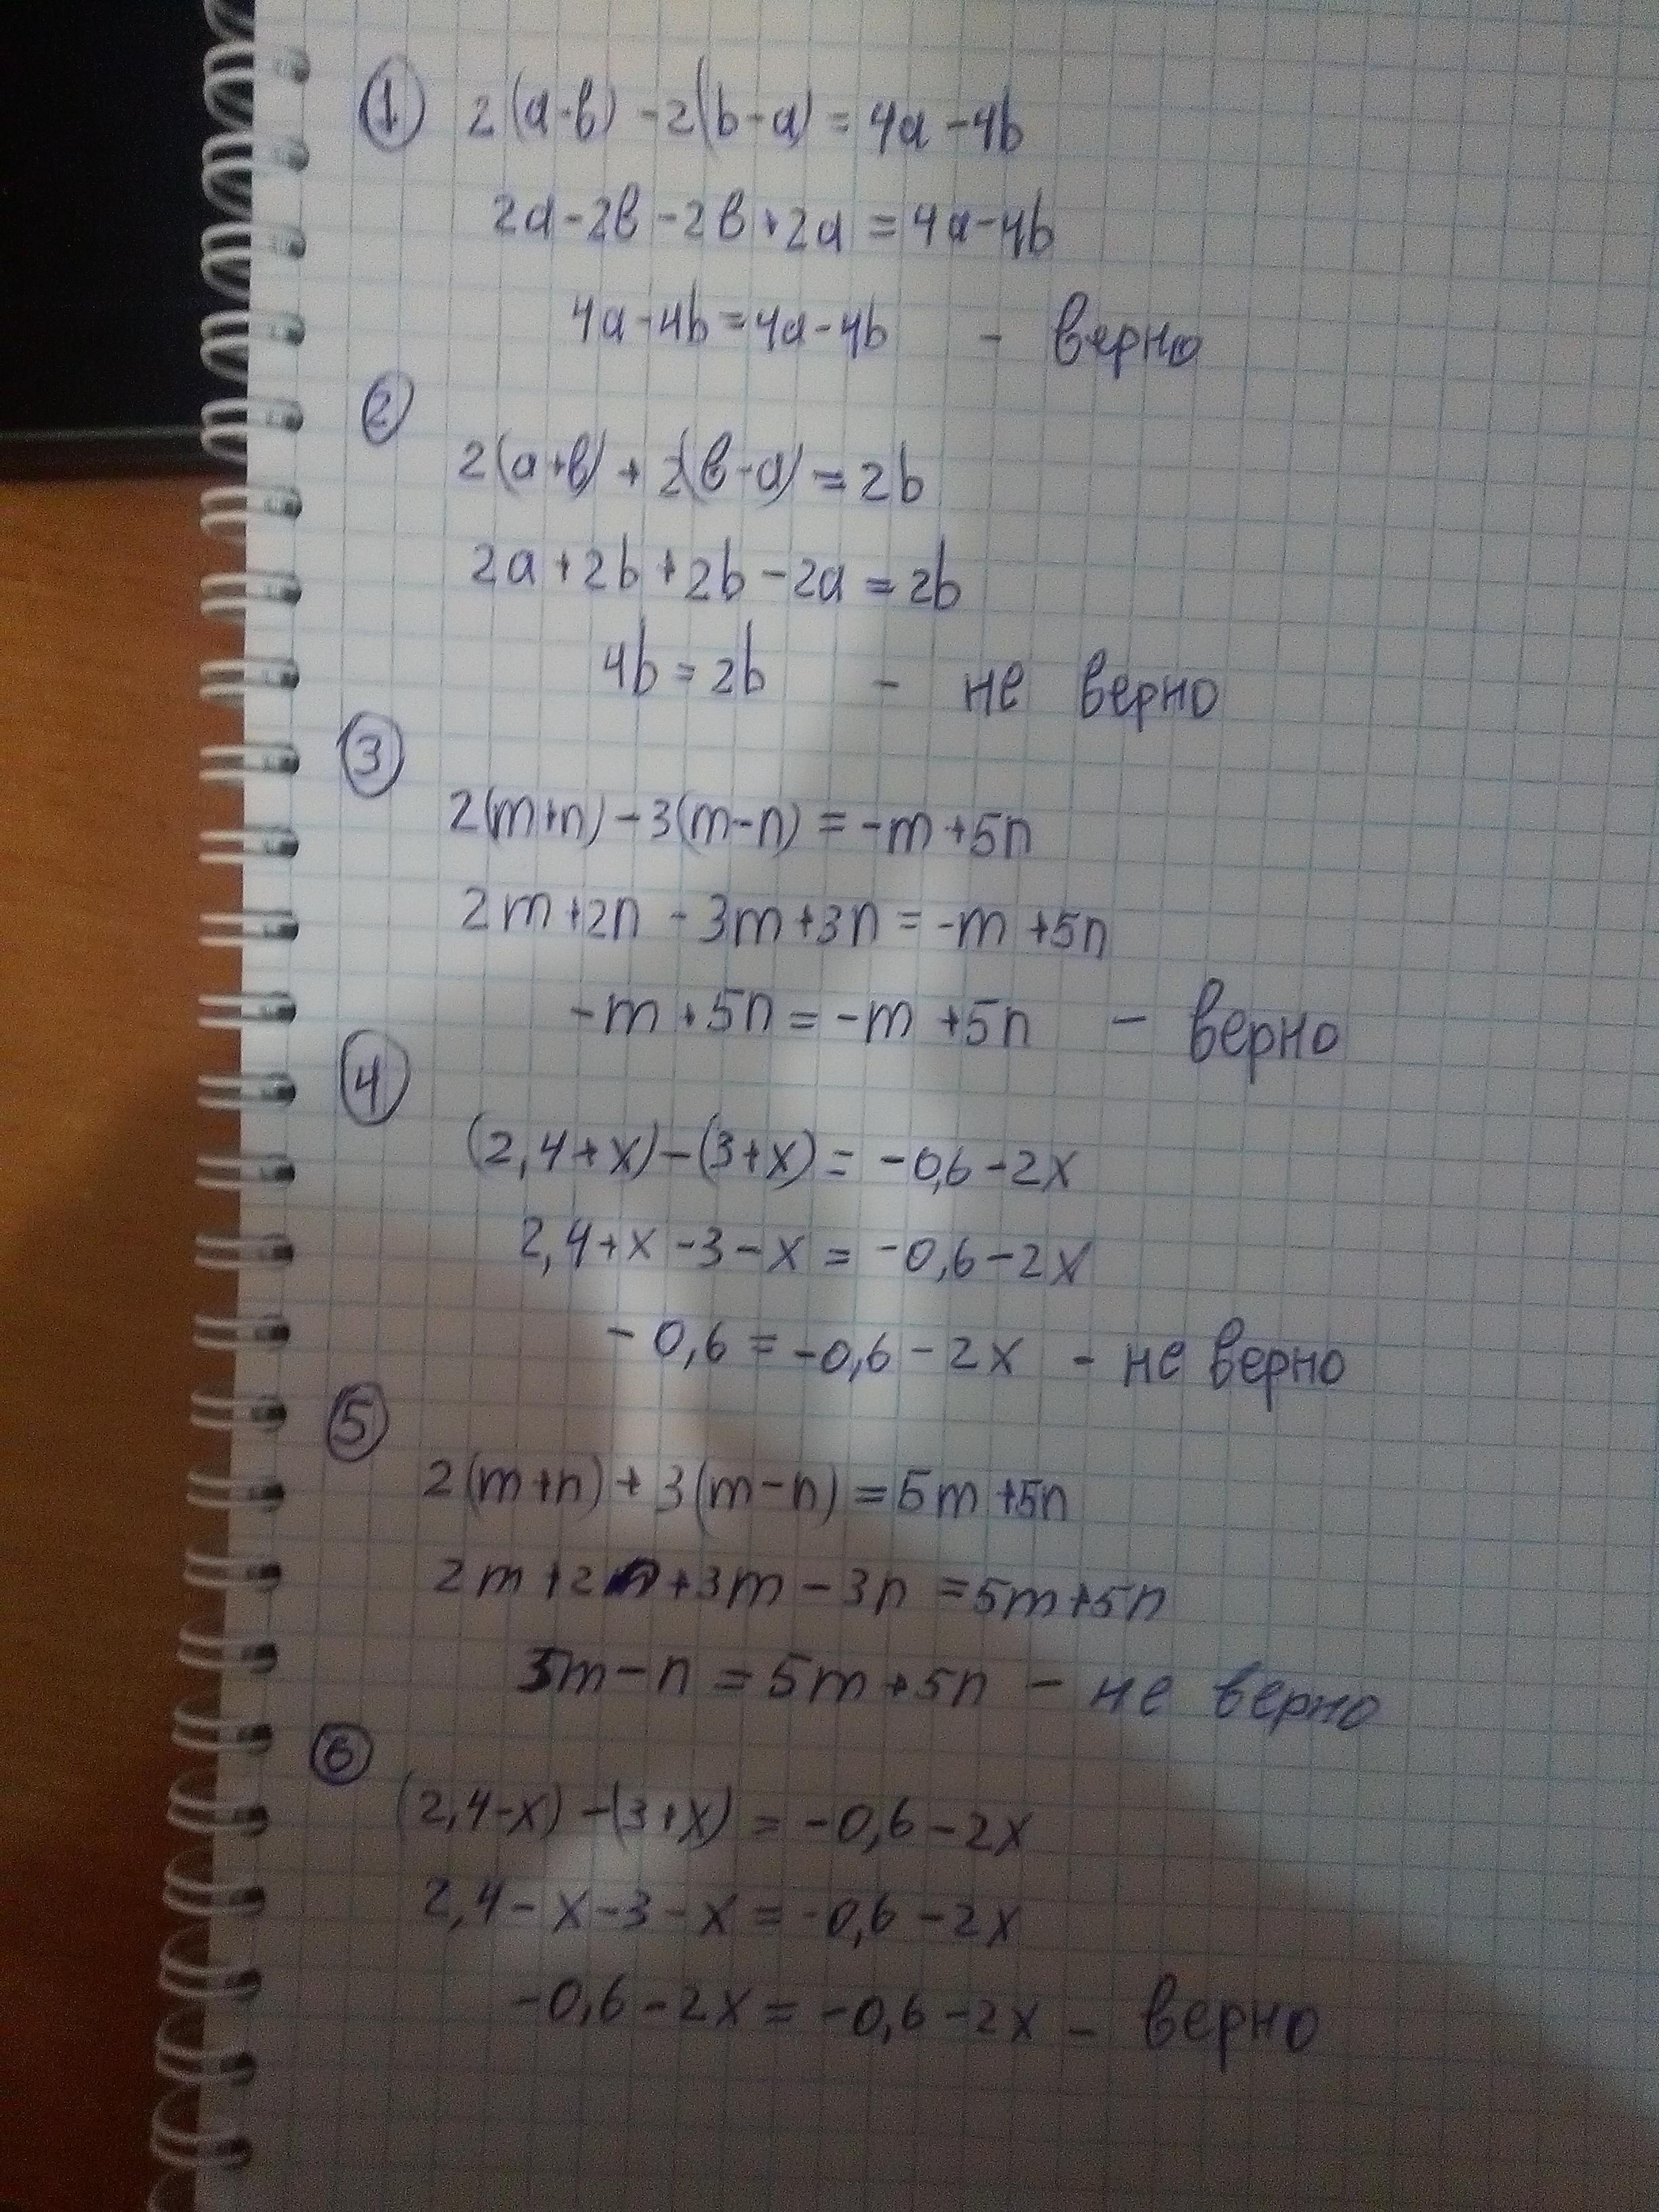 1 2(a-в) -2(b-a) = 4a -4b
2a-2в -2в+2a = 4a-4b
4a-4b=4a-4b - верно
2
2(a+в) + 2(в-a) = 2b
2a+2b+2b-2a=2b
4b=2b - не верно
3
2(m+n) -3(m-n) = -m +5n
2m+2n -3m+3n = -m +5n
-m +5n = -m +5n - верно
4
(2,4+x)-(3+x) = -0,6-2x
2,4+x -3-x = -0,6-2x
-0,6 = -0,6-2x - не верно
5
2(m+n)+3(m-n)=5m+5n
2m+2n+3m-3n =5m+5n
5m-n = 5m+5n - не верно
6
(2,4-x) -(3+x) = -0,6-2x
2,4-x-3-x = -0,6-2x
-0,6-2x = -0,6-2x - верно